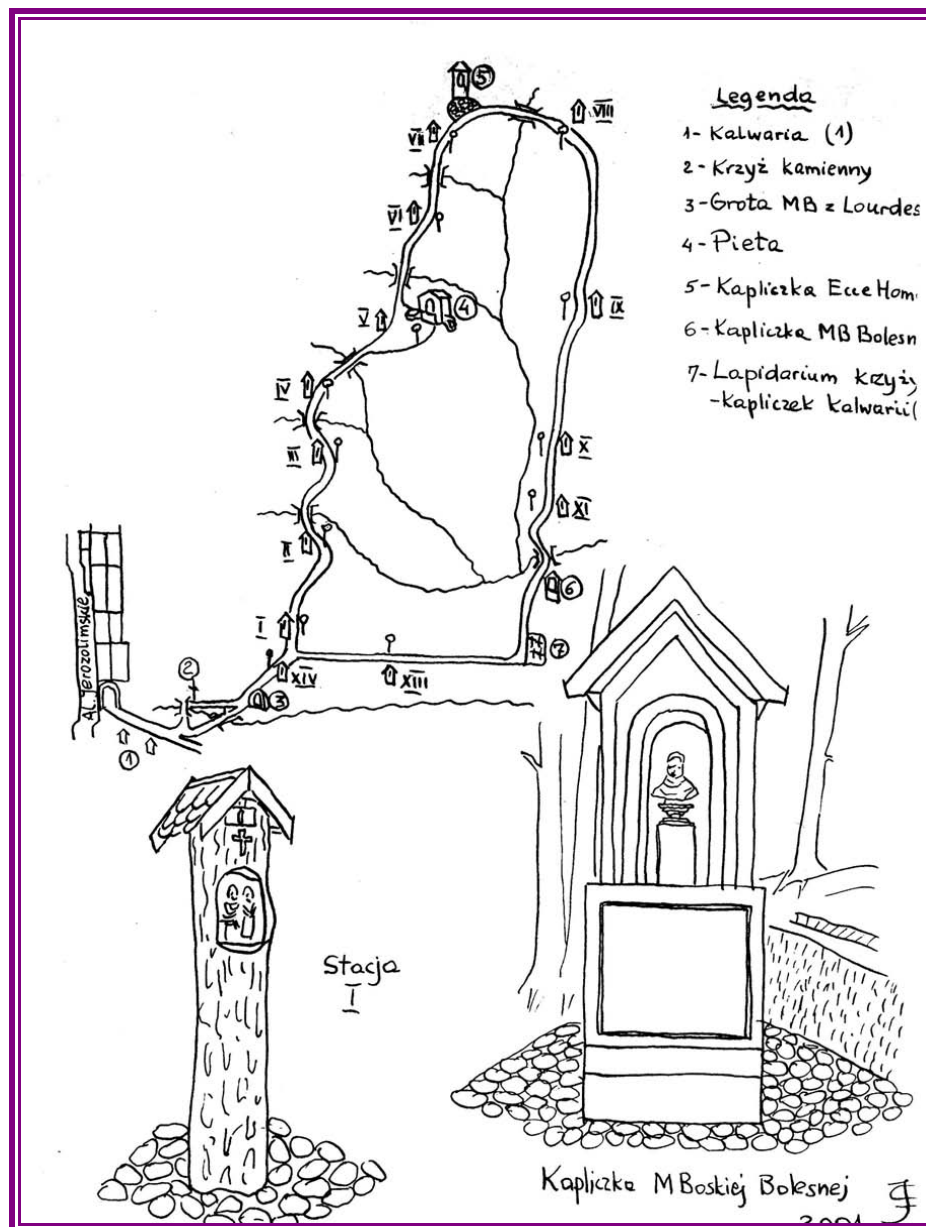 Legenda
1- Kalwaria (1)
2- Krzyż kamienny
3- Grota MB z Lourdes
4- Pieta
5- Kapliczka Ecce Hom
6- Kapliczka MB Bolesn
7- Lapidarium krzyży
-Kapliczek Kalwarii(
5
VIII
VII
VI
4
V
IX
IV
III
X
XI
II
6
I
7
XIV
XIII
2
3
Al. Jerozolimskie
1
Stacja
I
Kapliczka M Boskiej Bolesnej
2001